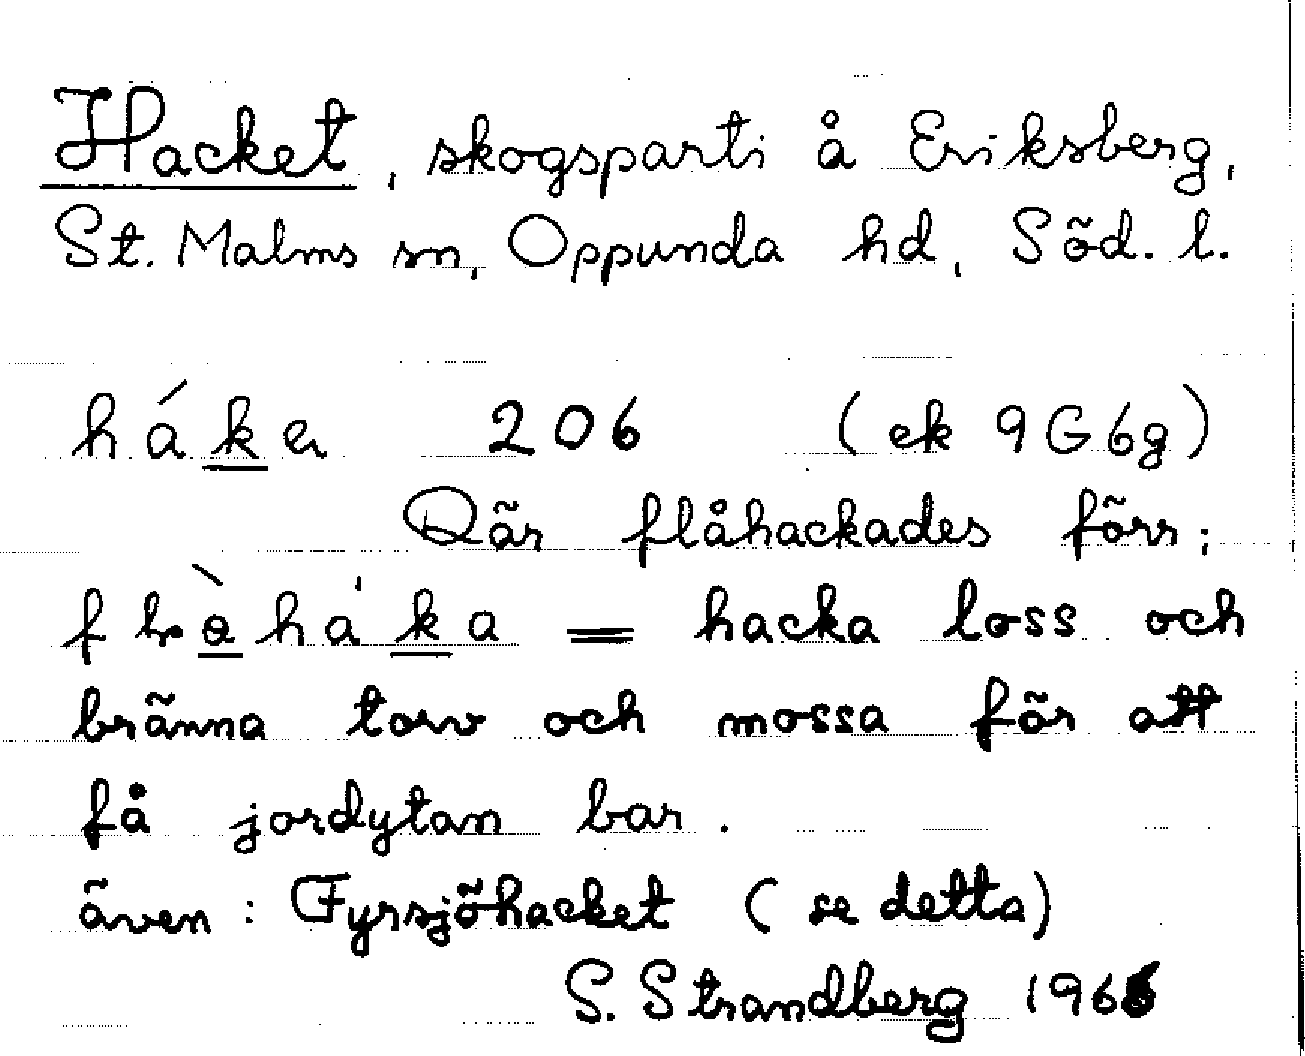 Hacket, skogsparti å Eriksberg,
St. Malms sn, Oppunda hd, Söd. l.
háka 206 (ek 9G6g)
Där flåhackades förr;
hacka loss och
bränna torv och mossa för att
få jordytan bar.
även: Fyrsjöhacket (se detta)
S. Strandberg 1966